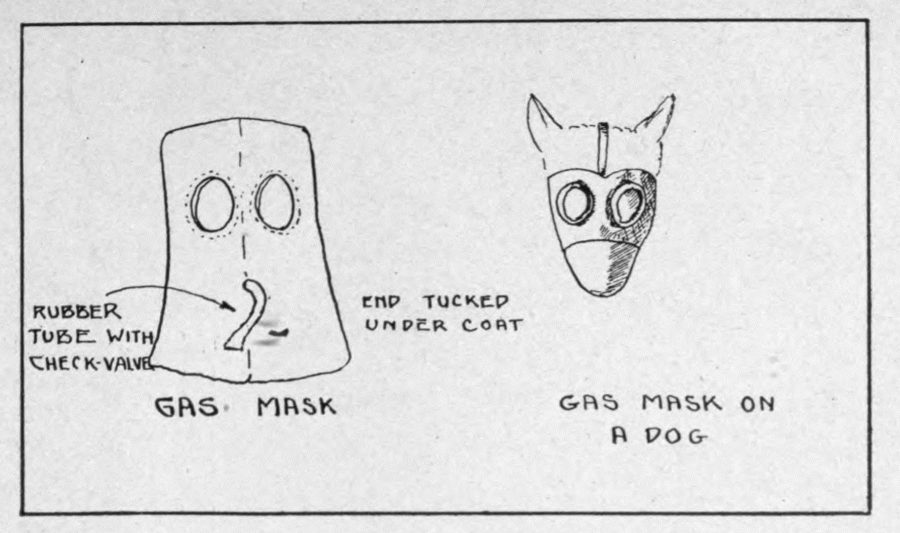 RUBBER
TUBE WITH
CHECK-VALVE
END TUCKED
UNDER COAT
GAS MASK
GAS MASK ON
A DOG